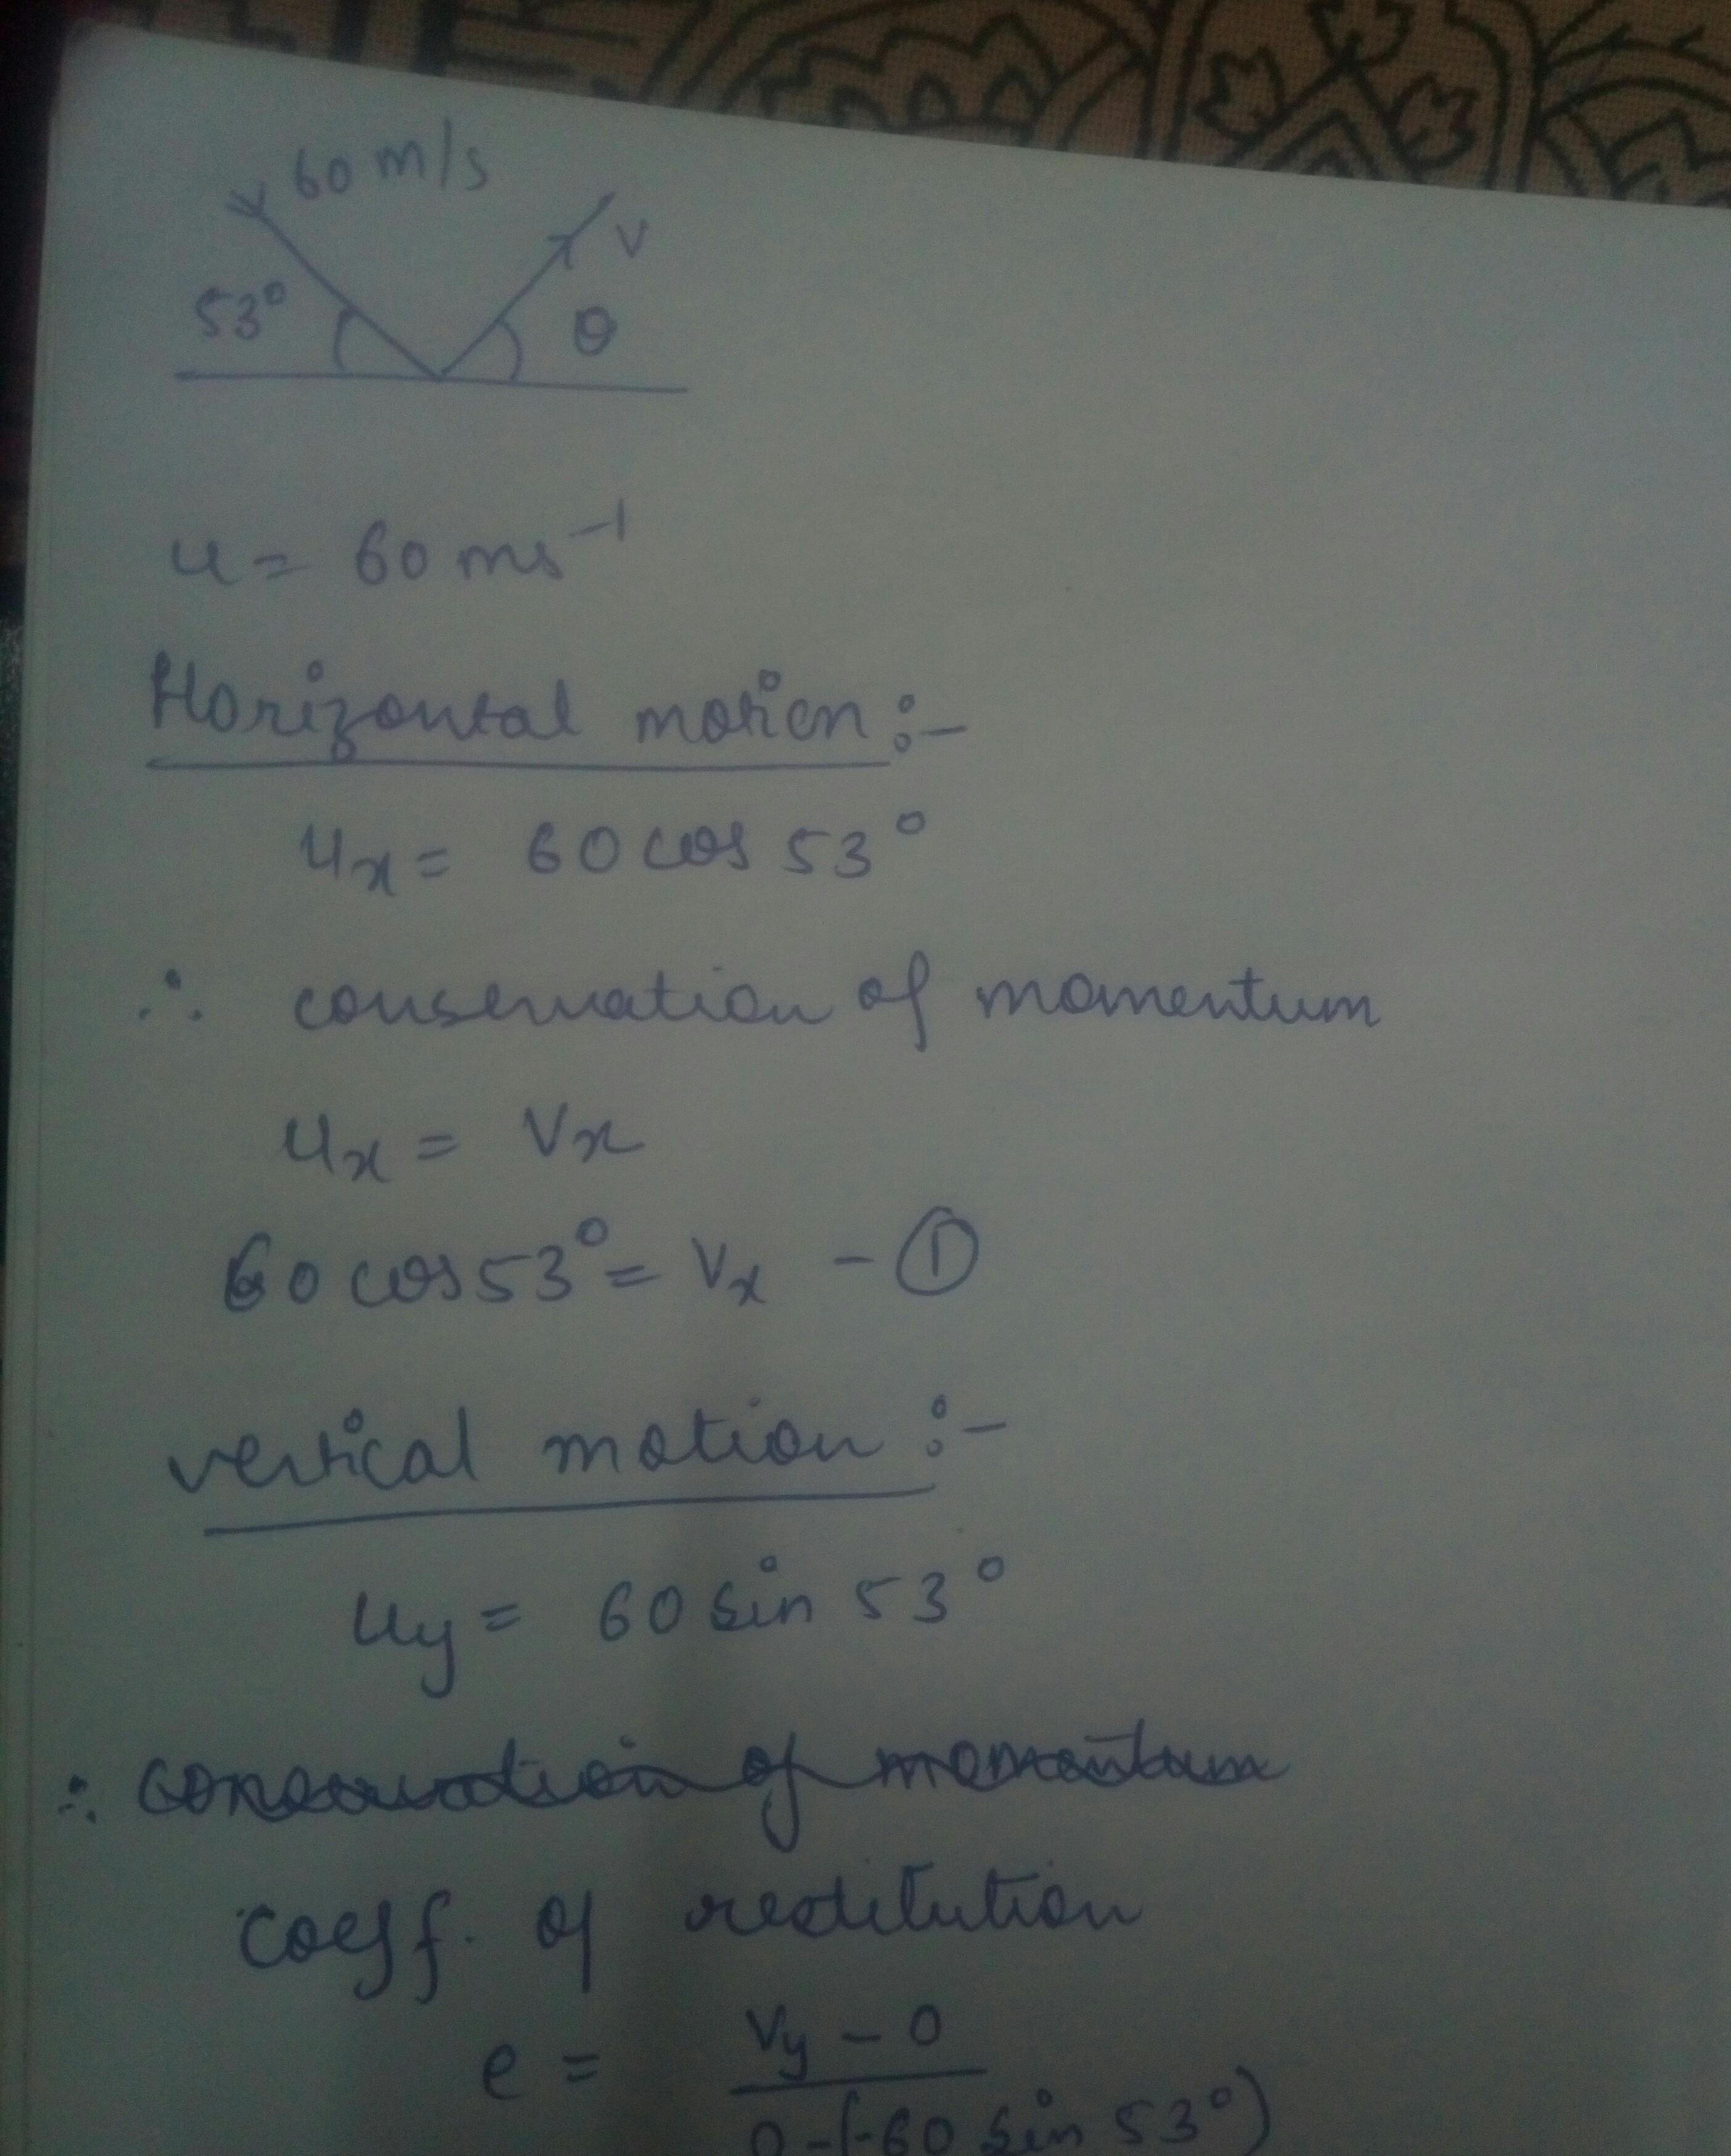 60 m/s
V
53°
θ
u = 60 ms⁻¹
Horizontal motion :-
uₓ = 60 cos 53°
∴ conservation of momentum
uₓ = Vₓ
60 cos 53° = Vₓ - ①
vertical motion :-
u_y = 60 sin 53°
∴ conservation of momentum
coeff. of restitution
e = \frac{V_y - 0}{0 - (-60 sin 53°)}